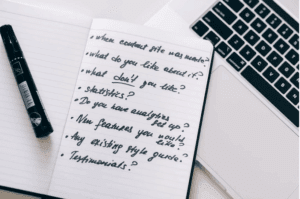 • When content site was made?
• What do you like about it?
• What don't you like?
• Statistics?
• Do you have analytics
set up?
• New features you would
like?
• Any existing style guide?
• Testimonials?